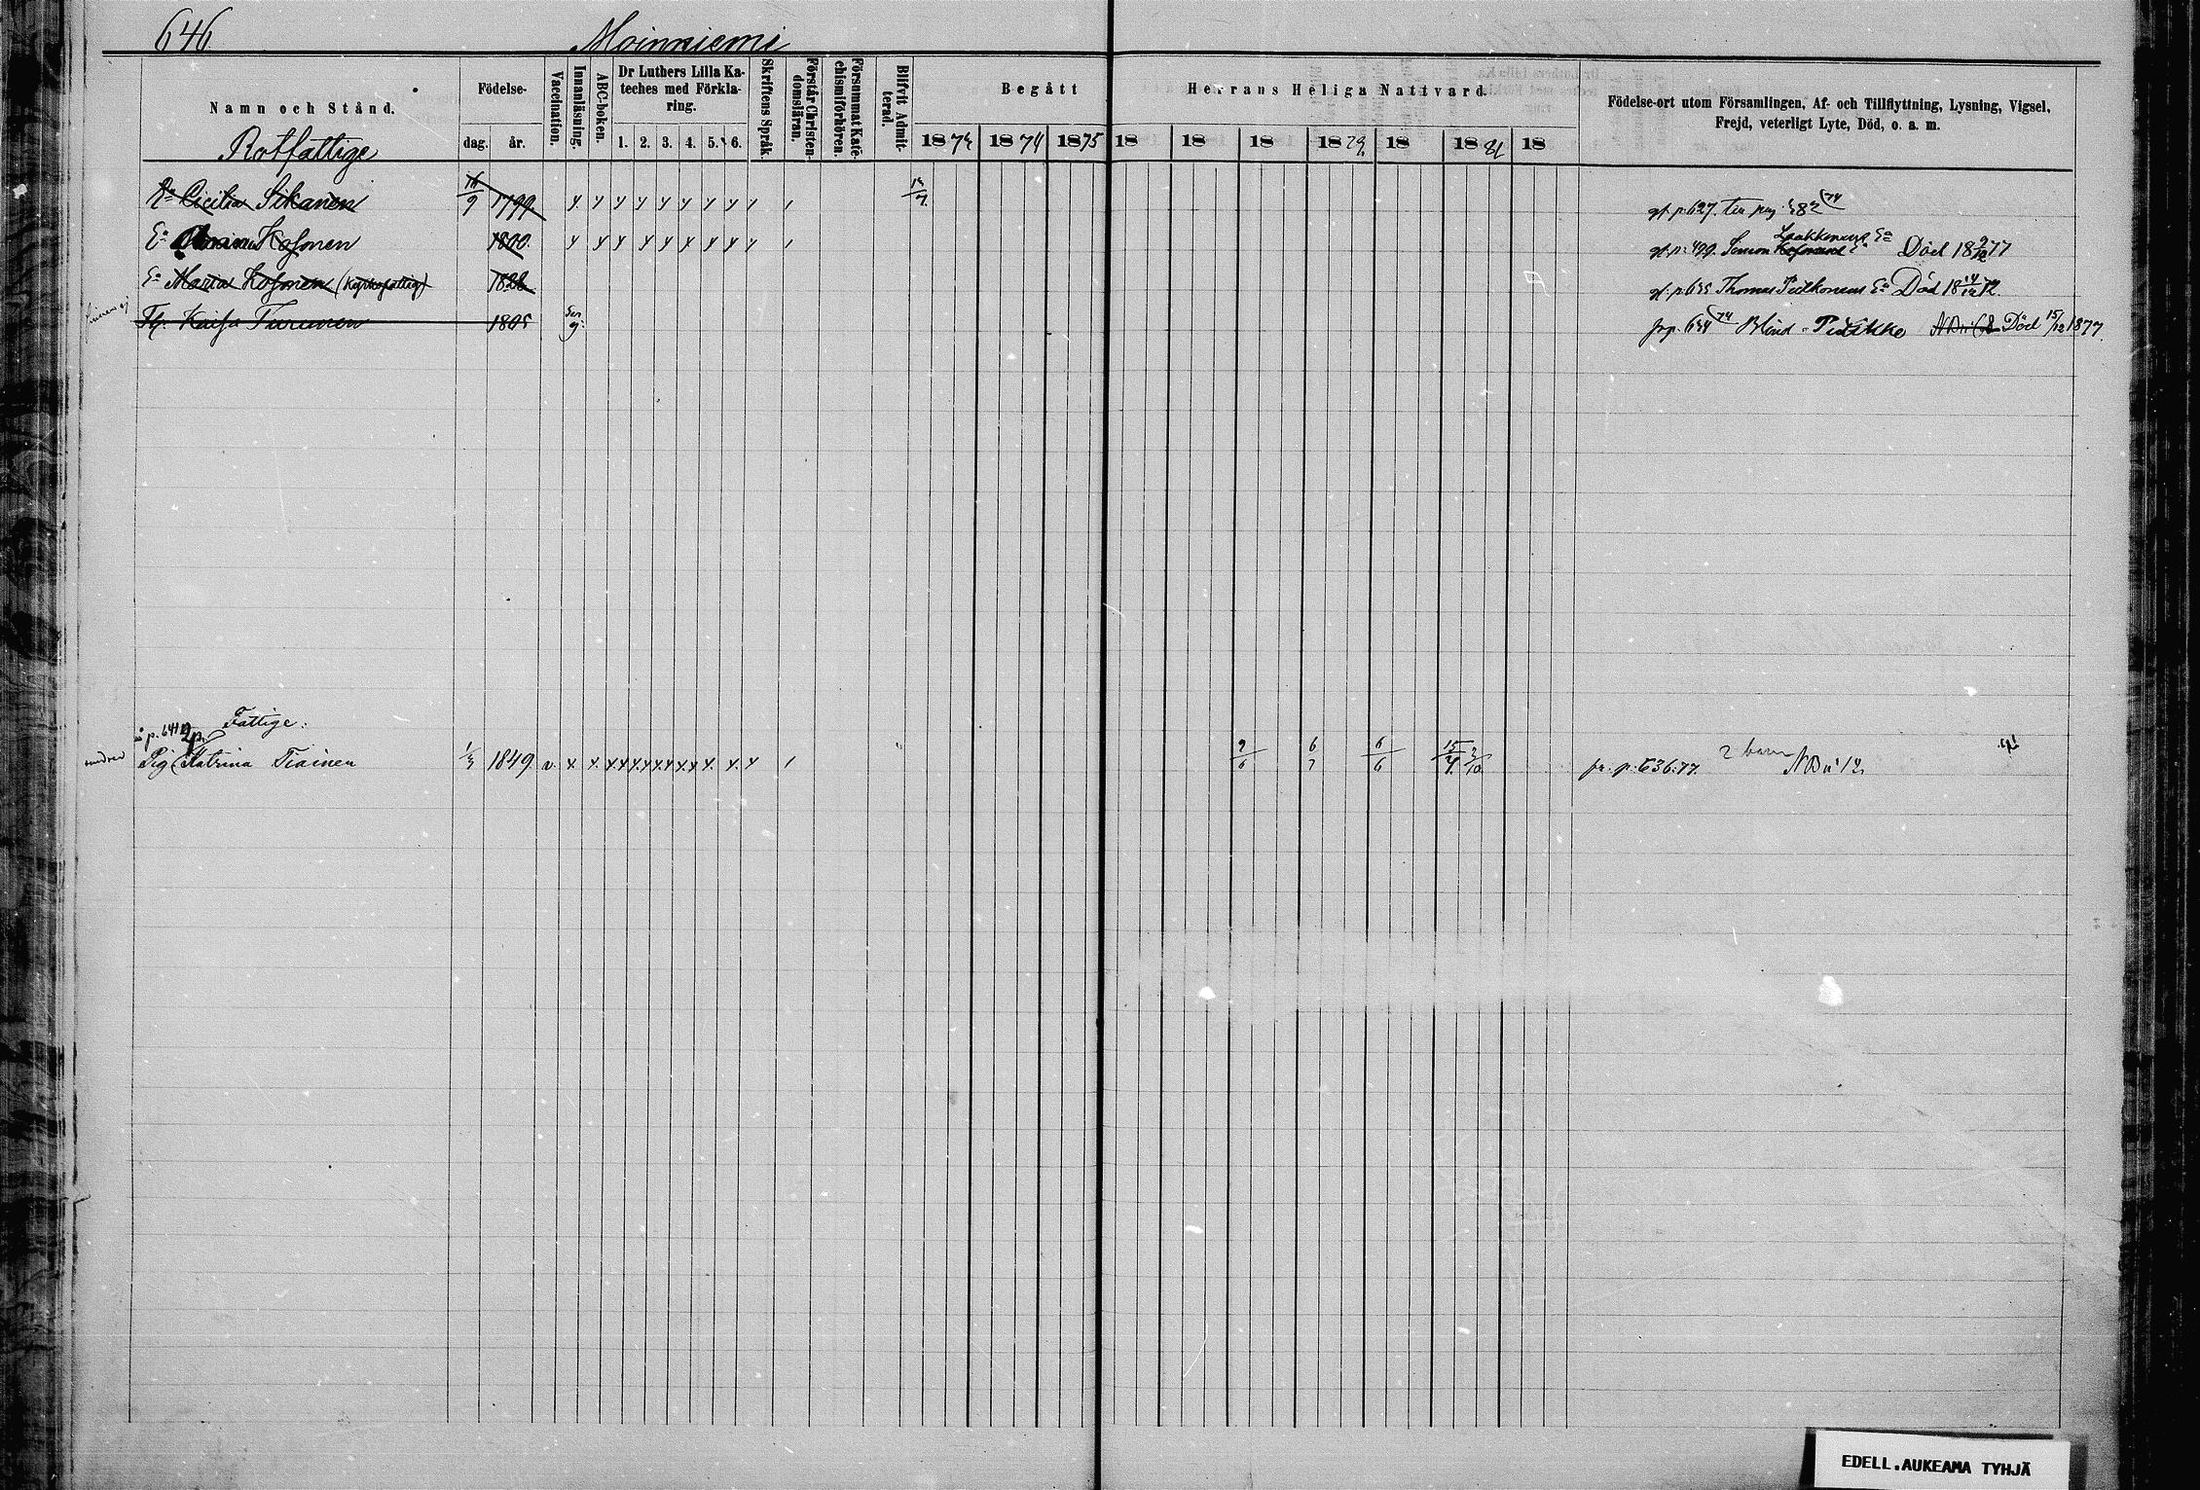 646
Moinniemi
Namn och Stånd.
Födelse-
dag.
år.
Vaccination.
Innanläsning.
ABC-boken.
Dr Luthers Lilla Ka-
teches med Förkla-
ring.
1. 2. 3. 4. 5. 6.
Skriftens Språk.
Förstår Christen-
domsläran.
Försummat Kate-
chismiförhören.
Blifvit Admit-
terad.
Begått Herrans Heliga Nattvard.
1874 1875 18 18 18 1879 18 1881 18
Födelse-ort utom Församlingen, Af- och Tillflyttning, Lysning, Vigsel,
Frejd, veterligt Lyte, Död, o. a. m.
Rotfattige
Ea Cicilia Sikanen 9 1799 x x x x x x x x gl. p. 627.
Ea Kosonen 1800. x x x x x x x x gl. p. 499. Simon Laakkonens Ea Död 18 9/12 77
Ea Maria Kosonen (Kyrkofattig) 1828 gl. p. 635 Thomas Ea Död 18
Kaisa Turunen 1805 frp. 634 74 Blind Död 15/12 1877.
Fattige:
p. 641
Pig Katrina Tiainen 1849 v. x x x x x x x x 9/6 6/7 6/6 15/4 fr. p. 636.77. 2 barn
EDELL.AUKEAMA TYHJÄ